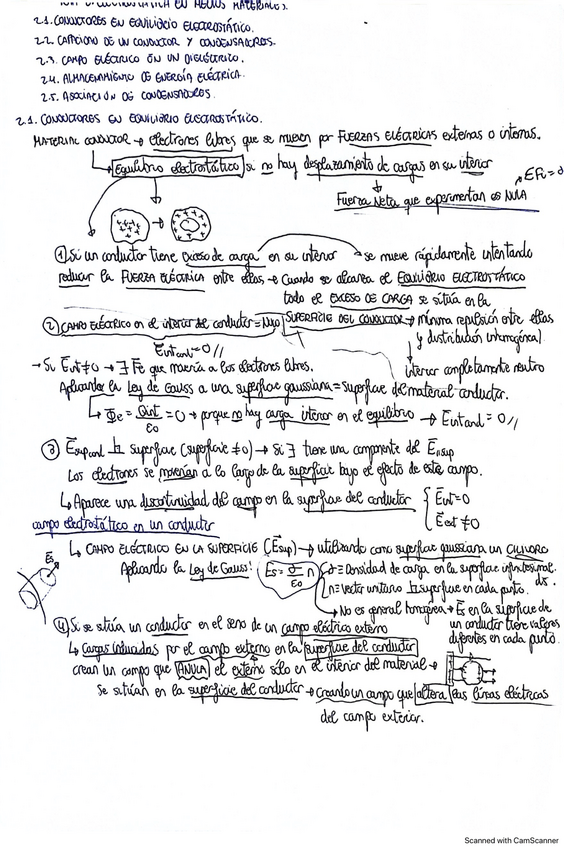 ELECTROSTÁTICA EN MEDIOS MATERIALES.
2.1. CONDUCTORES EN EQUILIBRIO ELECTROSTÁTICO.
2.2. CAPACIDAD DE UN CONDUCTOR Y CONDENSADORES.
2.3. CAMPO ELÉCTRICO EN UN DIELÉCTRICO.
2.4. ALMACENAMIENTO DE ENERGÍA ELÉCTRICA.
2.5. ASOCIACIÓN DE CONDENSADORES.
2.1. CONDUCTORES EN EQUILIBRIO ELECTROSTÁTICO.
MATERIAL CONDUCTOR → electrones libres que se mueven por FUERZAS ELÉCTRICAS externas o internas.
Equilibrio electrostático si no hay desplazamiento de cargas en su interior
Fuerza Neta que experimentan es NULA
① Si un conductor tiene exceso de carga en su interior → se mueve rápidamente intentando
reducir la FUERZA ELÉCTRICA entre ellas → Cuando se alcanza el EQUILIBRIO ELECTROSTÁTICO
todo el EXCESO DE CARGA se sitúa en la
② CAMPO ELÉCTRICO en el interior del conductor = Nulo SUPERFICIE DEL CONDUCTOR → Mínima repulsión entre ellas
y distribución inhomogénea.
Eint cond = 0 //
→ Si Eint ≠ 0 → ∃ Fe que movería a los electrones libres. interior completamente neutro
Aplicando la Ley de Gauss a una superficie gaussiana = Superficie del material conductor.
↳ Φe = Qint/ε0 = 0 → porque no hay carga interior en el equilibrio → Eint cond = 0 //
③ Esup cond ⊥ superficie (superficie ≠ 0) → Si ∃ tiene una componente del E∥sup
Los electrones se moverían a lo largo de la superficie bajo el efecto de este campo.
↳ Aparece una discontinuidad del campo en la superficie del conductor { Eint = 0
Eext ≠ 0
campo electrostático en un conductor
↳ CAMPO ELÉCTRICO EN LA SUPERFICIE (Esup) → utilizando como superficie gaussiana un CILINDRO
Aplicando la Ley de Gauss: Es = σ/ε0 n σ = Densidad de carga en la superficie infinitesimal ds.
Es n = Vector unitario ⊥ superficie en cada punto.
→ No es general homogénea → E en la superficie de
un conductor tiene valores
diferentes en cada punto.
④ Si se sitúa un conductor en el seno de un campo eléctrico externo
↳ Cargas inducidas por el campo externo en la superficie del conductor
crean un campo que ANULA el externo sólo en el interior del material →
Se sitúan en la superficie del conductor → creando un campo que altera las líneas eléctricas
del campo exterior.
Scanned with CamScanner